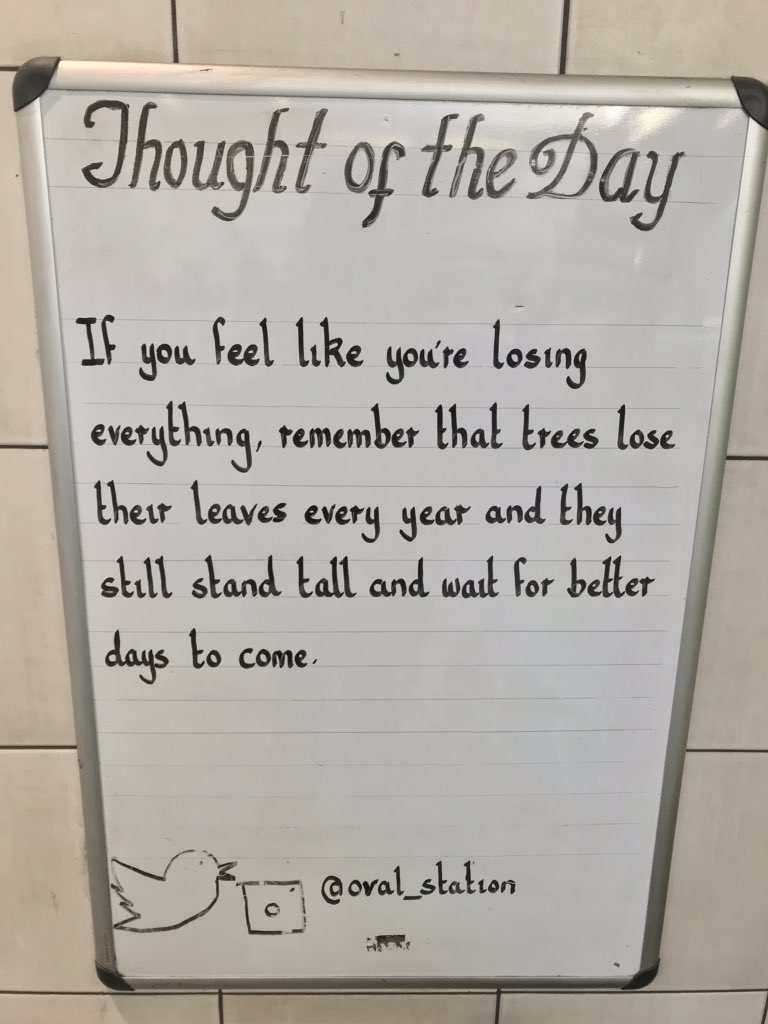 Thought of the Day
If you feel like you're losing
everything, remember that trees lose
their leaves every year and they
still stand tall and wait for better
days to come.
@oval_station